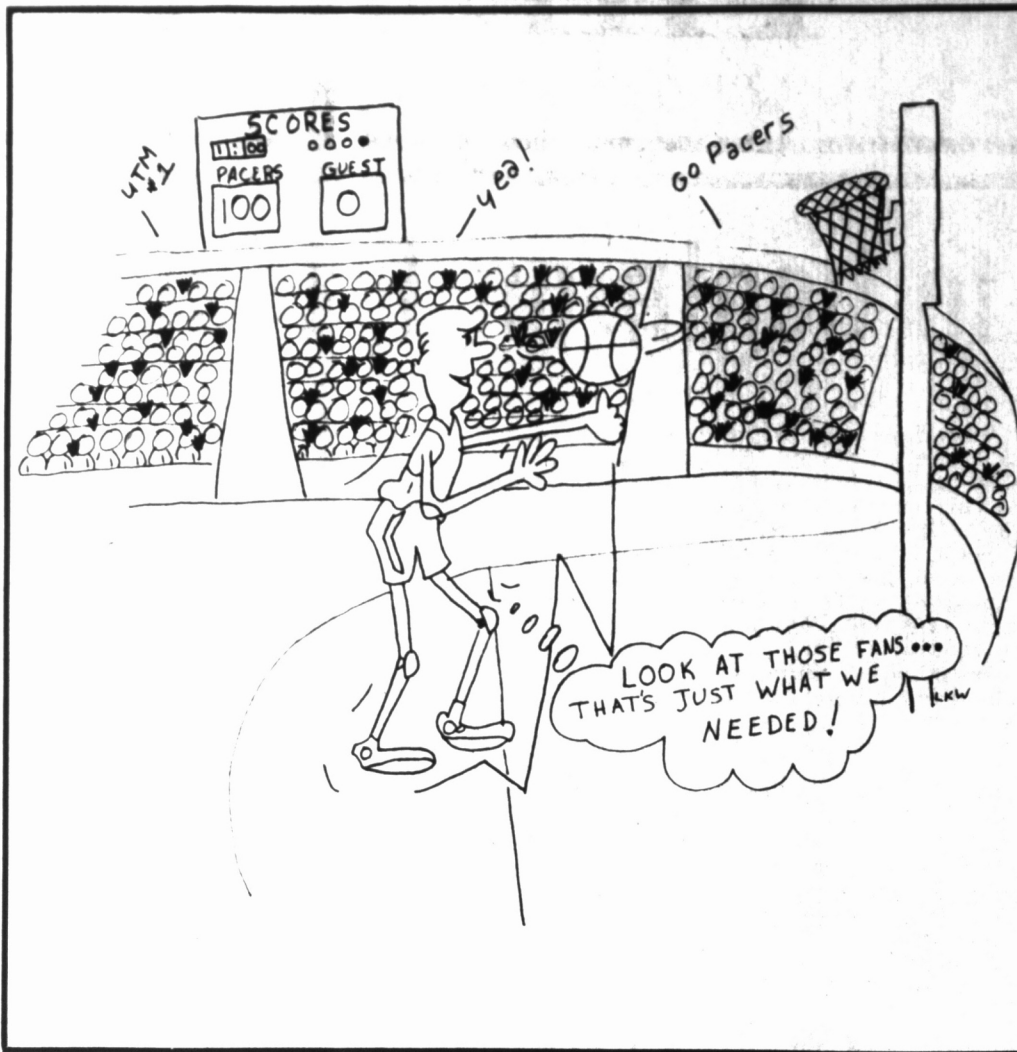 SCORES
11:00
PACERS GUEST
100 0
UTM
#1
yea!
Go Pacers
LOOK AT THOSE FANS...
THAT'S JUST WHAT WE
NEEDED!
LKW